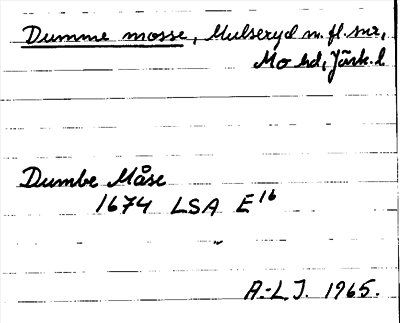 Dumme mosse, Mulseryd m. fl. snr,
Mo hd, Jönk. l
Dumbe Måse
1674 LSA E16
"
A.-L J. 1965.